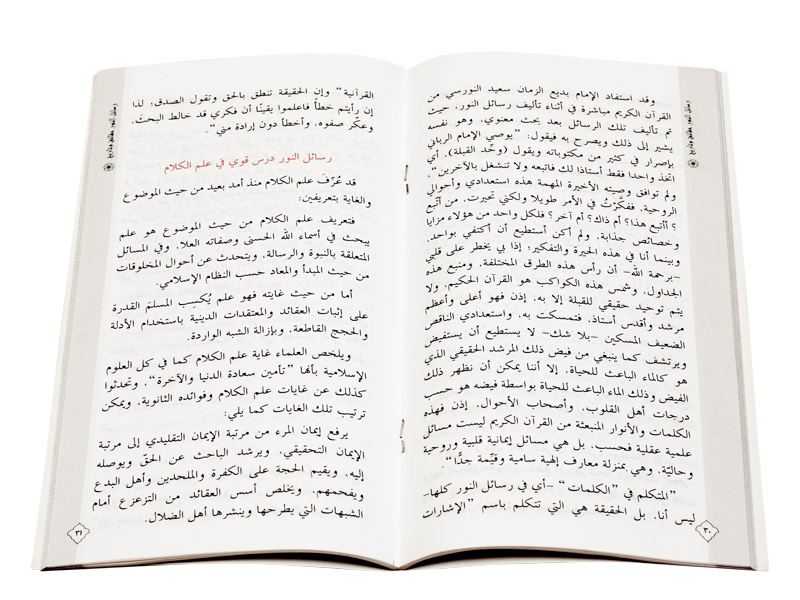 وقد استفاد الإمام بديع الزمان سعيد النورسي من
القرآن الكريم مباشرة في أثناء تأليف رسائل النور، حيث
تم تأليف تلك الرسائل بعد بحث معنوي. وهو نفسه
يشير إلى ذلك ويصرح به فيقول: "يوصي الإمام الرباني
بإصرار في كثير من مكتوباته ويقول (وحّد القبلة)، أي
اتخذ واحداً فقط أستاذا لك فاتبعه ولا تنشغل بالآخرين".
ولم توافق وصيته الأخيرة المهمة هذه استعدادي وأحوالي
الروحية، ففكَّرْتُ في الأمر طويلا ولكني تحيرت. من أتّبع
؟ أأتبع هذا؟ أم ذاك؟ أم آخر؟ فلكل واحد من هؤلاء مزايا
وخصائص جذابة، ولم أكن أستطيع أن أكتفي بواحد.
وبينما أنا في هذه الحيرة والتفكير؛ إذا بي يخطر على قلبي
-برحمة الله- أن رأس هذه الطرق المختلفة، ومنبع هذه
الجداول، وشمس هذه الكواكب هو القرآن الحكيم، ولا
يتم توحيد حقيقي للقبلة إلا به. إذن فهو أعلى وأعظم
مرشد وأقدس أستاذ. فتمسكت به، واستعدادي الناقص
الضعيف المسكين -بلا شك- لا يستطيع أن يستفيض
ويرتشف كما ينبغي من فيض ذلك المرشد الحقيقي الذي
هو كالماء الباعث للحياة، إلا أننا يمكن أن نظهر ذلك
الفيض وذلك الماء الباعث للحياة بواسطة فيضه هو حسب
درجات أهل القلوب، وأصحاب الأحوال. إذن فهذه
الكلمات والأنوار المنبعثة من القرآن الكريم ليست مسائل
علمية عقلية فحسب، بل هي مسائل إيمانية قلبية وروحية
وحاليّة، وهي بمنزلة معارف إلهية سامية وقيّمة جدًّا".
"المتكلم في "الكلمات" -أي في رسائل النور كلها-
ليس أنا، بل الحقيقة هي التي تتكلم باسم "الإشارات
٣٠
القرآنية" وإن الحقيقة تنطق بالحق وتقول الصدق؛ لذا
إن رأيتم خطأً فاعلموا يقينًا أن فكري قد خالط البحث،
وعكّر صفوه، وأخطأ دون إرادة مني".
رسائل النور درس قوي في علم الكلام
قد عُرِّفَ علم الكلام منذ أمد بعيد من حيث الموضوع
والغاية بتعريفين:
فتعريف علم الكلام من حيث الموضوع هو علم
يبحث في أسماء الله الحسنى وصفاته العلا، وفي المسائل
المتعلقة بالنبوة والرسالة، ويتحدث عن أحوال المخلوقات
من حيث المبدأ والمعاد حسب النظام الإسلامي.
أما من حيث غايته فهو علم يُكسِب المسلم القدرة
على إثبات العقائد والمعتقدات الدينية باستخدام الأدلة
والحجج القاطعة، وبإزالة الشبه الواردة.
ويلخص العلماء غاية علم الكلام كما في كل العلوم
الإسلامية بأنها "تأمين سعادة الدنيا والآخرة"، وتحدثوا
كذلك عن غايات علم الكلام وفوائده الثانوية، ويمكن
ترتيب تلك الغايات كما يلي:
يرفع إيمان المرء من مرتبة الإيمان التقليدي إلى مرتبة
الإيمان التحقيقي، ويرشد الباحث عن الحقّ ويوصله
إليه، ويقيم الحجة على الكفرة والملحدين وأهل البدع
ويفحمهم، ويخلص أسس العقائد من التزعزع أمام
الشبهات التي يطرحها وينشرها أهل الضلال.
٣١